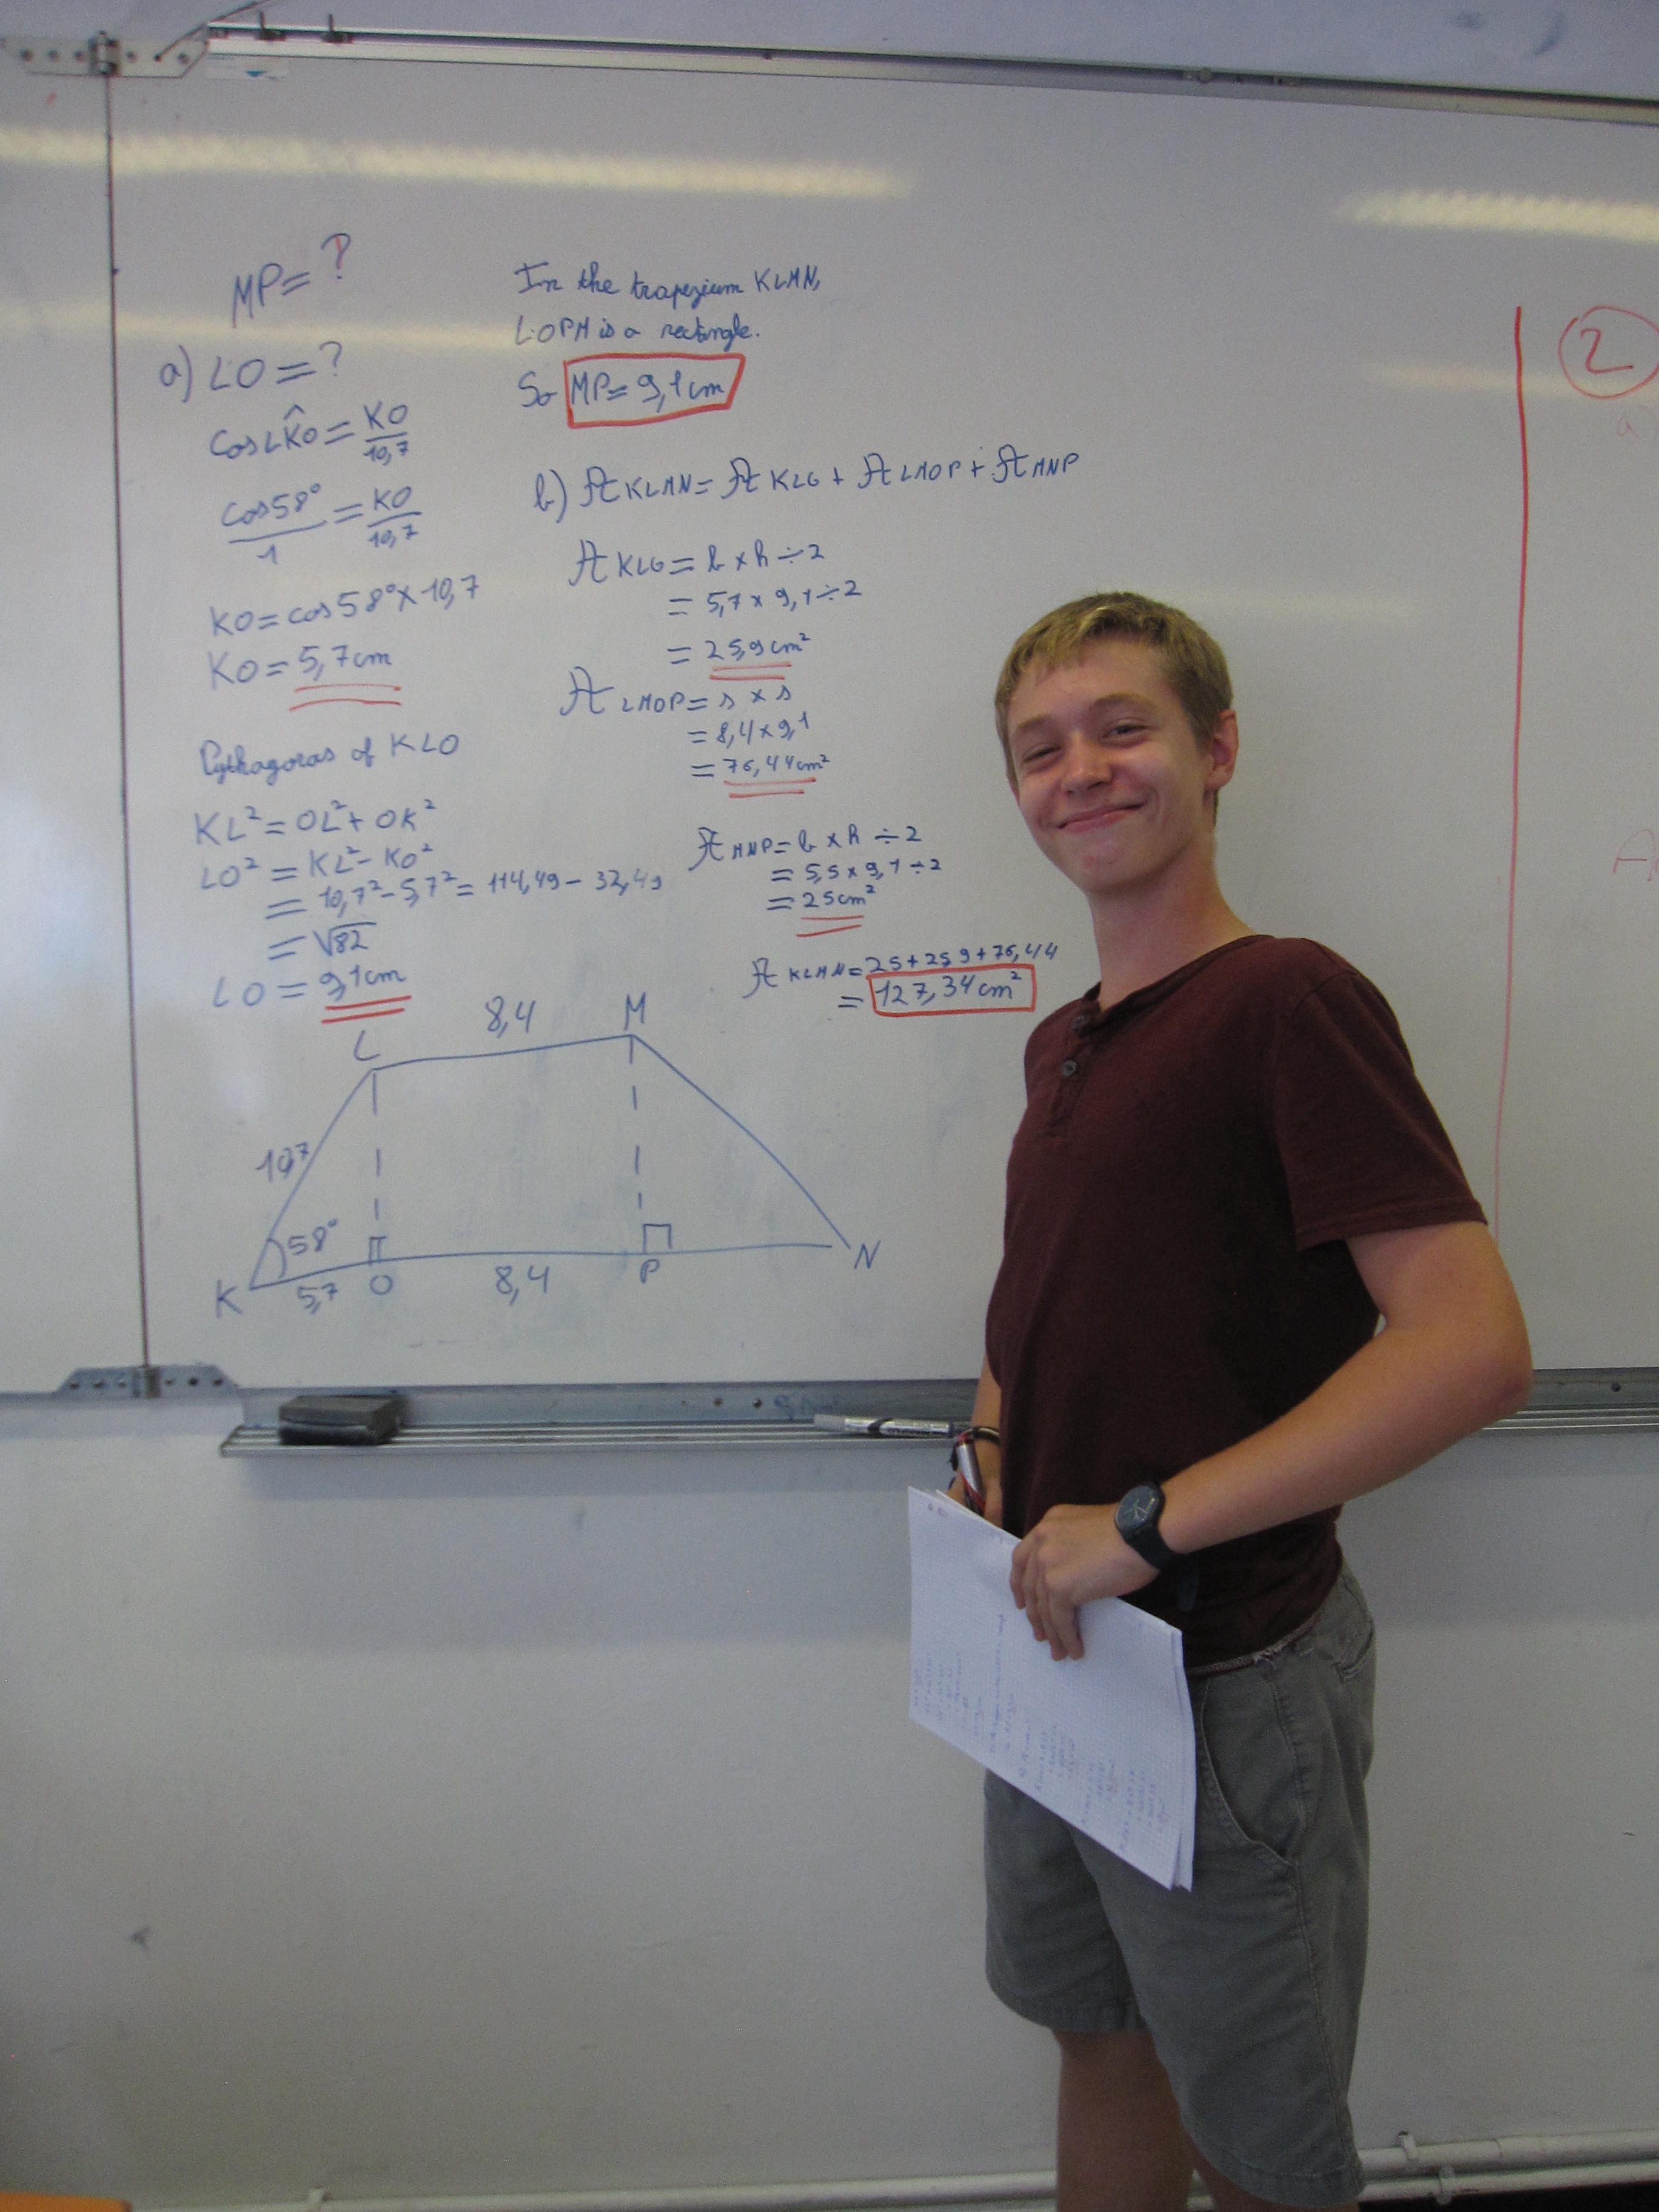 MP= ?
a) LO = ?
cos LK̂O = KO/10,7
cos58°/1 = KO/10,7
KO = cos58° × 10,7
KO = 5,7cm
Pythagoras of KLO
KL² = OL² + OK²
LO² = KL² - KO²
= 10,7² - 5,7² = 114,49 - 32,49
= √82
LO = 9,1cm
In the trapezium KLMN,
LOPM is a rectangle.
So MP= 9,1cm
b) A KLMN = A KLO + A LMOP + A MNP
A KLO = b × h ÷ 2
= 5,7 × 9,1 ÷ 2
= 25,9cm²
A LMOP = s × s
= 8,4 × 9,1
= 76,44cm²
A MNP = b × h ÷ 2
= 5,5 × 9,1 ÷ 2
= 25cm²
A KLMN = 25 + 25,9 + 76,44
= 127,34cm²
L 8,4 M
10,7
58°
K 5,7 O 8,4 P N
2
a)